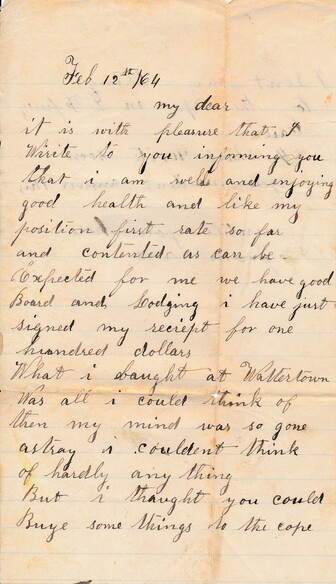 Feb 12st/64
my dear
it is with pleasure that I
Wirite to you informing you
that i am well and enjoying
good health and like my
position first rate so far
and contented as can be
Expected for me we have good
Board and Lodging i have just
signed my reciept for one
hundred dollars
What i baught at Wattertown
Was all i could think of
then my mind was so gone
astray i couldent think
of hardly any thing
But i thaught you could
Buye some things to the cape